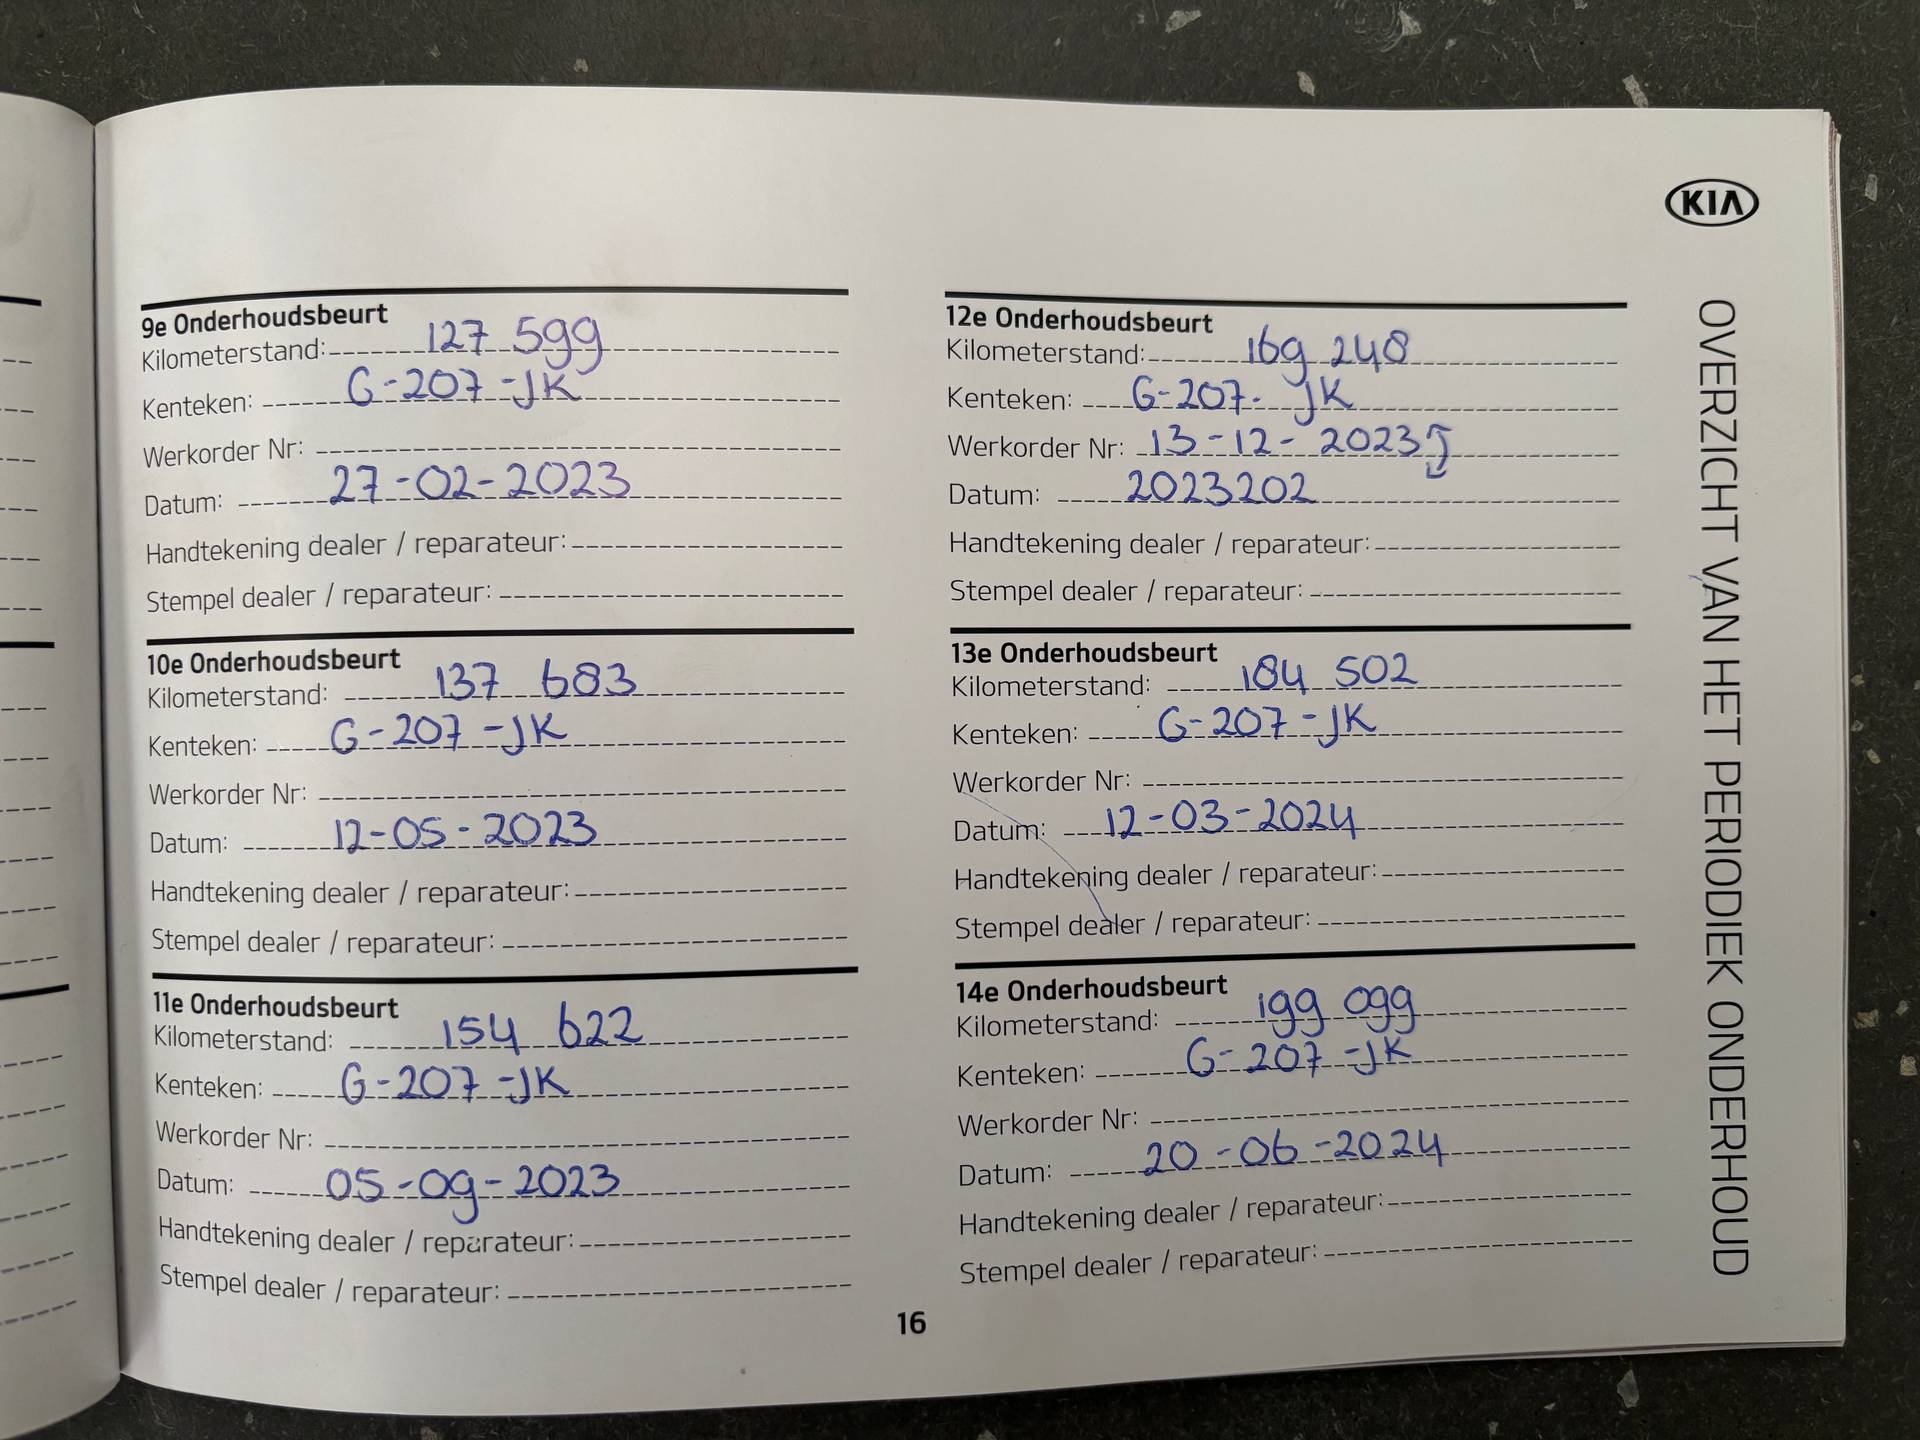 KIA
OVERZICHT VAN HET PERIODIEK ONDERHOUD
9e Onderhoudsbeurt
Kilometerstand: 127 599
Kenteken: G-207-JK
Werkorder Nr:
Datum: 27-02-2023
Handtekening dealer / reparateur:
Stempel dealer / reparateur:
10e Onderhoudsbeurt
Kilometerstand: 137 683
Kenteken: G-207-JK
Werkorder Nr:
Datum: 12-05-2023
Handtekening dealer / reparateur:
Stempel dealer / reparateur:
11e Onderhoudsbeurt
Kilometerstand: 154 622
Kenteken: G-207-JK
Werkorder Nr:
Datum: 05-09-2023
Handtekening dealer / reparateur:
Stempel dealer / reparateur:
12e Onderhoudsbeurt
Kilometerstand: 169 248
Kenteken: G-207-JK
Werkorder Nr: 13-12-2023
Datum: 2023202
Handtekening dealer / reparateur:
Stempel dealer / reparateur:
13e Onderhoudsbeurt
Kilometerstand: 184 502
Kenteken: G-207-JK
Werkorder Nr:
Datum: 12-03-2024
Handtekening dealer / reparateur:
Stempel dealer / reparateur:
14e Onderhoudsbeurt
Kilometerstand: 199 099
Kenteken: G-207-JK
Werkorder Nr:
Datum: 20-06-2024
Handtekening dealer / reparateur:
Stempel dealer / reparateur:
16